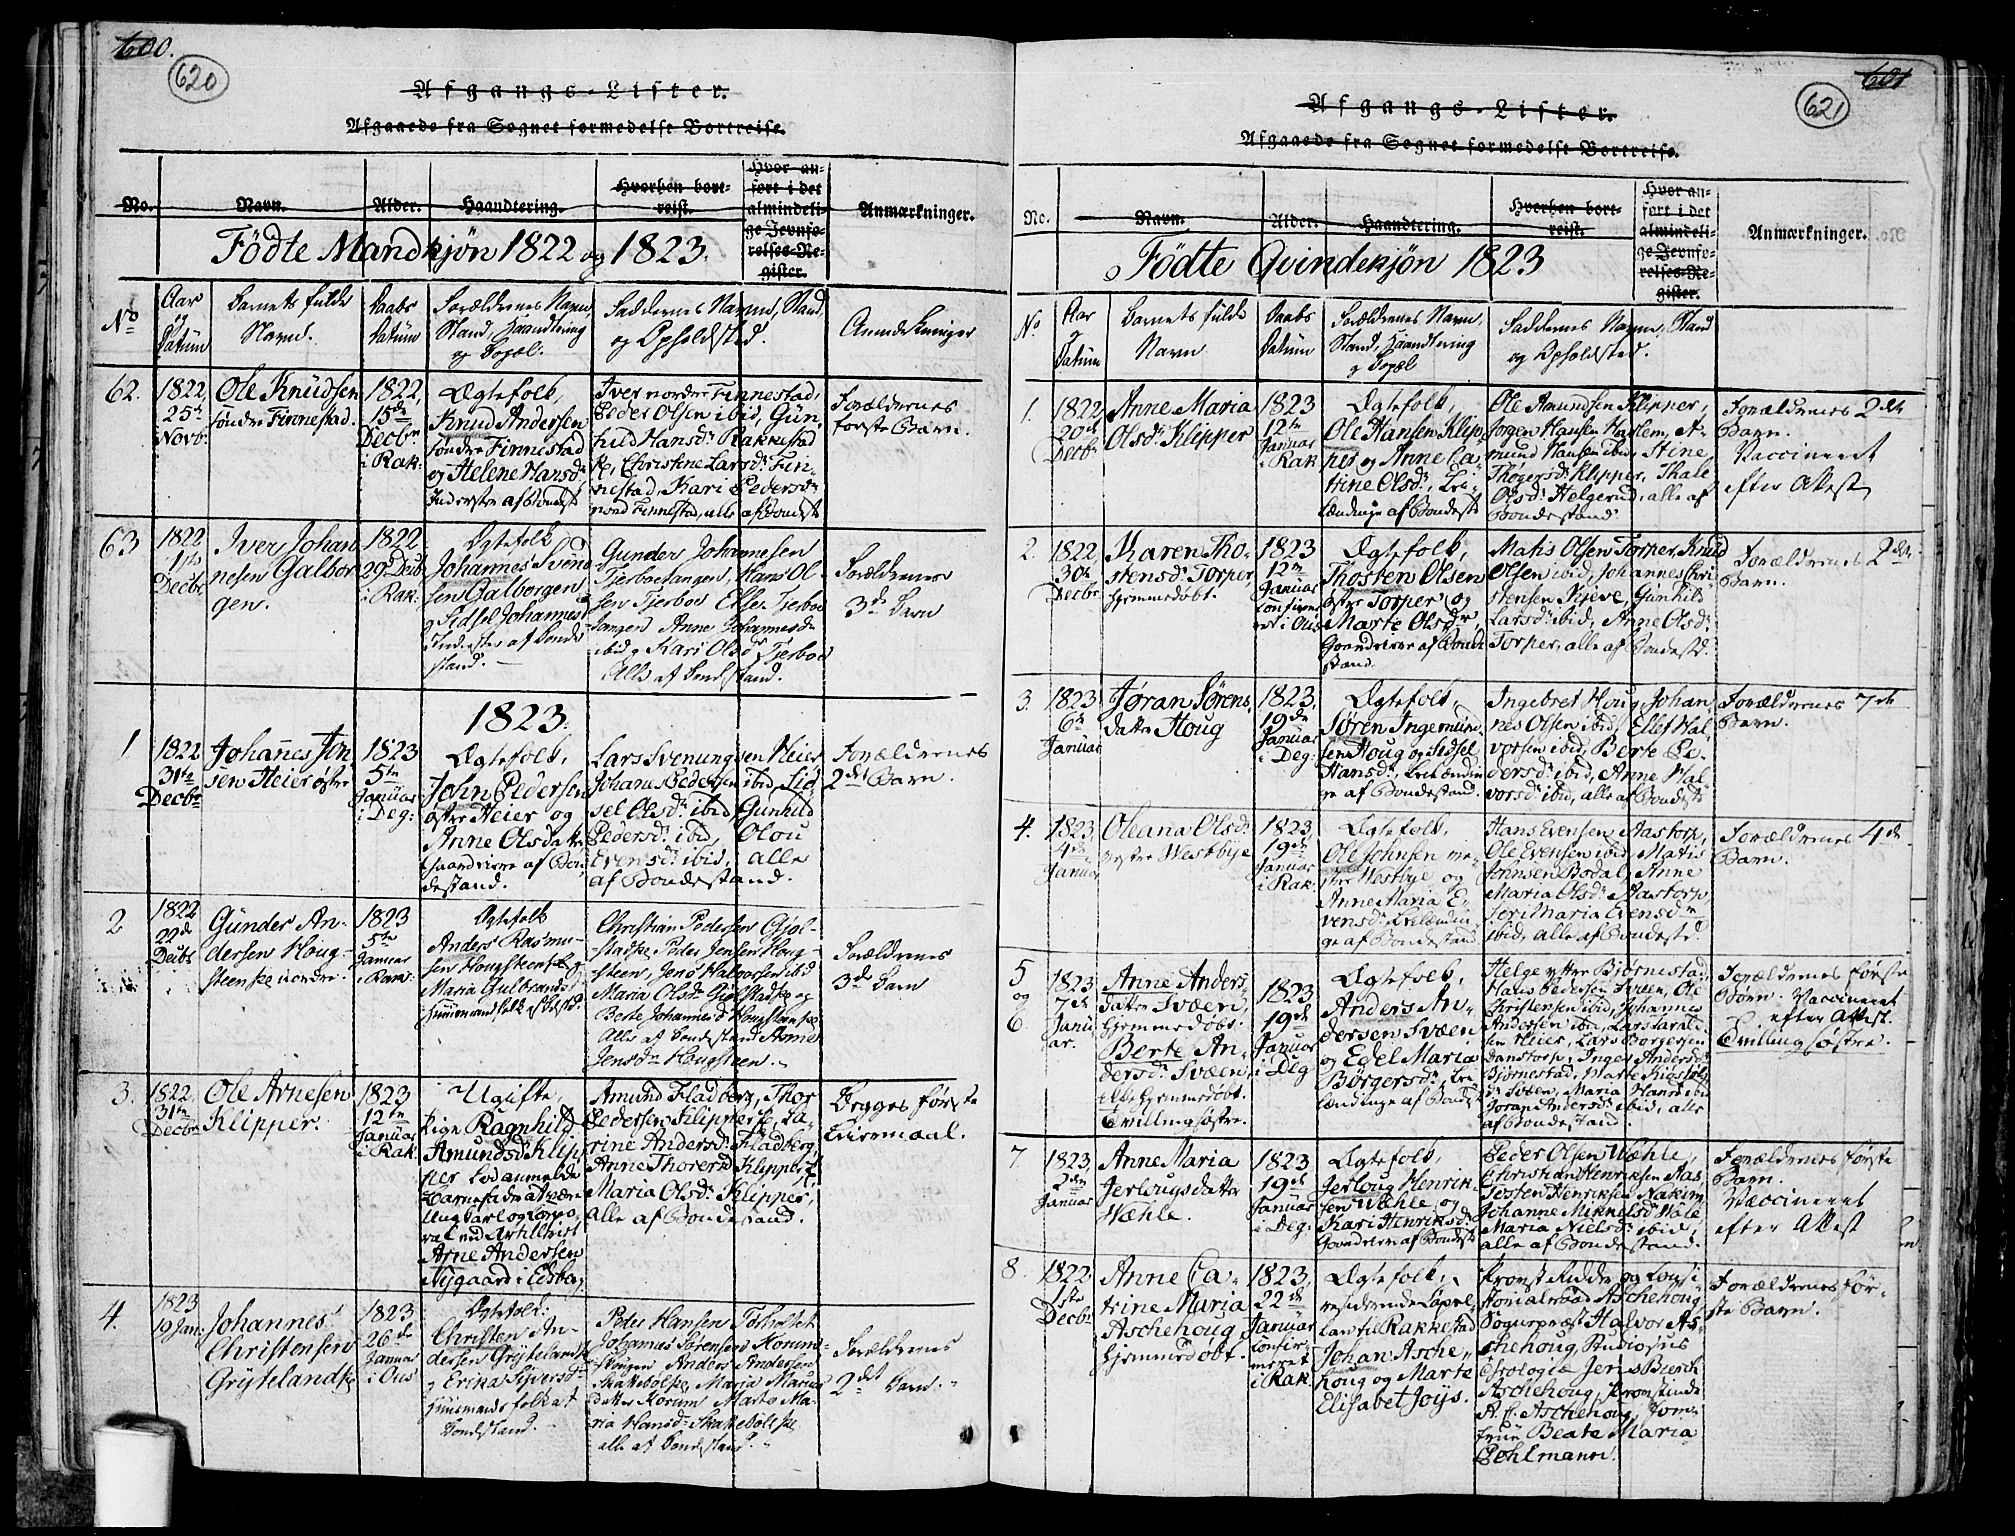 600.
620
Afgangs-Lister.
Afgaaede fra Sognet formedelst Bortreise.
No.
Navn.
Alder.
Haandtering.
Hvorhen bort-
reist.
Hvor an-
ført i det
almindeli-
ge Jevnfø-
relses-Re-
gister.
Anmærkninger.
Födte Mandkjön 1822 og 1823.
No
Aar
og
Datum
Barnets fulde
Navn.
Daabs
Datum
Forældrenes Navn,
Stand, Haandtering
og Bopæl.
Faddernes Navne, Stand,
og Opholdsted.
Anmærkninger
62.
1822,
25de
Novb:
Ole Knudsen
søndre Finnestad.
1822,
15de
Decbr
i Rak:
Ægtefolk,
Knud Andersen
søndre Finnestad
og Helene Hansdr
Inderster af Bondest
Iver nordre Finnestad,
Peder Olsen ibid, Gun-
hild Hansdr Rakkestad
Christine Larsdr Fin-
nestad, Kari Pedersdr
nord Finnestad, alle af Bondest
Forældrenes
første Barn.
63
1822
1ste
Decbr
Iver Johan
nesen Galbor
gen.
1822
29 Decb
i Rak:
Ægtefolk
Johannes Svend
sen Galborgen
og Sidsel Johannesd
Inderster af Bonde
stand.
Gunder Johannesen
Tjerboetangen, Hans Ol-
sen Tjerboe Elle Tjerboe
tangen Anne Johannesdr
ibid og Kari Olsdr Tjerboe
Alle af Bondestand.
Forældrenes
3de Barn
1823.
1
1822
31te
Decbr
Johanes Jon
sen Heier østre
1823
5te
Januar
i Deg:
Ægtefolk,
John Pedersen
østre Heier og
Anne Olsdatter
Gaardsierre af Bon
destand.
Lars Svenungsen Heier
Johanes Pedersen ibid Sid
sel Olsdr ibid, Gunhild
Pedersdr ibid, Olou
Evensdr ibid, alle
af Bondestand.
Forældrenes
2det Barn.
2
1822
22de
Decbr
Gunder An-
dersen Houg-
steenpe nordre.
1823
5te
Januar
i Rak:
Ægtefolk
Anders Rasmu-
sen Hougsteenpe og
Maria Gulbrandsd
Huusmandsfolk af Bstd.
Christian Pedersen Gjøl-
stadpe, Peder Jensen Houg-
steen, Jens Halvorsen ibid
Maria Olsdr Gjølstadpe og
Berte Johannesd Hougsteenpe
Alle af Bondestand
Jensdr Hougsteen.
Forældrenes
3de Barn
3.
1822,
31te
Decbr
Ole Arnesen
Klipper.
1823
12te
Januar
i Rak:
Ugifte,
Pige Ragnhild
Amundsd Klip
per
Barnefader at være
Ungkarl og Corpo-
ral ved Artilleriet
Arne Andersen
Nygaard i Edsberg.
Amund Fladberg, Thor
Pedersen Klipperpe, Ca-
rine Andersdr Fladberg,
Anne Thorersd Klipperpe,
Maria Olsdr Klipper,
alle af Bondestand.
Begges første
Leiermaal.
4.
1823
19 Jan:
Johannes
Christensen
Grytelandpe
1823
26de
Januar
i Ous
Ægtefolk:
Christen An-
dersen Grytelandpe
og Erika Syversdr
Huusmandsfolk af
Bondestand.
Peder Hansen Torholtet
Johannes Sørensen Korum-
Anders Andersen
Skatteböhlpe, Maria Marius
datter Korum Marte Ma-
ria Hansdr Skatteböhlpe
alle af Bondestand.
Forældrenes
2det Barn.
601
621
Afgangs-Lister.
Afgaaede fra Sognet formedelst Bortreise.
No.
Navn.
Alder.
Haandtering.
Hvorhen bort-
reist.
Hvor an-
ført i det
almindeli-
ge Jevnfø-
relses-Re-
gister.
Anmærkninger.
Födte Qvindekjön 1823
No
Aar
og
Datum
Barnets fulde
Navn
Daabs
Datum
Forældrenes Navn,
Stand, Haandtering
og Bopæl
Faddernes Navne, Stand
og Opholdsted.
1.
1822
20de
Decbr
Anne Maria
Olsdr Klipper
1823
12te
Januar
i Rak
Ægtefolk,
Ole Hansen Klip-
per og Anne Ca-
trine Olsdr, Lei-
lændinge af Bondestd
Ole Amundsen Klipper,
Jørgen Hansen Harlem, A-
mund Hansen ibid, Stine
Thøgersdr Klipper, Thale
Olsdr Helgerud, alle af
Bondestand.
Forældrenes 2det
Barn.
Vaccineret
efter Attest
2.
1822
30te
Decbr
Karen Tho-
stensdr Torper
hjemmedøbt.
1823
12te
Januar
confirme
ret i Ous
Ægtefolk,
Thosten Olsen
østre Torper og
Marte Olsdr,
Gaardeiere af Bonde
stand.
Matis Olsen Torper, Knud
Olsen ibid, Johannes Chri
stensen Kjeve, Gunhil
Larsdr ibid, Anne Olsdr
Torper, alle af Bondestd.
Forældrenes 2det
Barn.
3.
1823
6te
Januar
Jøran Sørens
datter Houg
1823,
19de
Januar
i Deg:
Ægtefolk,
Søren Ingemund
sen Houg og Sidsel
Hansdr, Leilændin
ge af Bondestand.
Ingebret Houg, Johan-
nes Olsen ibid, Ellef Hal-
vorsen ibid, Berte Pe-
dersdr ibid, Anne Hal
vorsdr ibid, alle af Bondestd
Forældrenes 7de
Barn.
4.
1823,
4de
Januar
Oleana Olsdr
mestre Westbye
1823,
19de
Januar
i Rak:
Ægtefolk,
Ole Johnsen me-
stre Westbye og
Anne Maria E-
vensdr Leilændin-
ge af Bondestand
Hans Evensen Aastorp,
Ole Evensen ibid, Matis
Johnsen Bodal, Anne
Maria Olsdr Aastorp,
Jori Maria Evensdr
ibid, alle af Bondestd.
Forældrenes 4de
Barn.
5
og
6.
1823
7de
Janu
ar.
Anne Anders
datter Svæen,
hjemmedøbt.
Berte An-
dersdr Svæen,
hjemmedøbt.
Tvillingsøstre.
1823,
19de
Januar
i Deg
Ægtefolk,
Anders An-
dersen Svæen
og Edel Maria
Børgersdr, Lei
lændinge af Bondest
Helge yttre Bjørnestad,
Hans Pedersen Sveen, Ole
Christensen ibid, Johannes
Andersen ibid, Lars Larsen
Heier, Lars Borgersen
Danstorp, Inger Andersdr
Bjørnestad, Marte
Svæen, Maria Hansd ibid
Joran Andersdr ibid, alle
af Bondestand.
Forældrenes første
Børn. Vaccineret
efter Attest.
Tvillingsøstre.
7
1823,
2den
Januar
Anne Maria
Jerlougsdatter
Wæhle.
1823
19de
Januar
i Deg:
Ægtefolk,
Jerloug Henrik
sen Wæhle og
Kari Henriksdr
Gaardeiere af Bondest
Peder Olsen Wæhle,
Christian Henriksen Aas
Josten Henriksen Nakim
Johanne Mikkelsdr Wæle
Maria Nielsdr ibid,
alle af Bondestand.
Forældrenes første
Barn.
Vaccineret
efter Attest
8.
1822
1ste
Decbr
Anne Ca-
trine Maria
Aschehoug
hjemmedøbt.
1823,
22de
Januar
confir
meret
i Rak
Ægtefolk,
residerende Capel-
lan til Rakkestad
Johan Asche-
houg og Marte
Elisabet Joys.
Provst Ridder og Consi-
storialraad Aschehoug,
Sognepræst Halvor As-
chehoug, Studiosus
Theologiæ Jens Bierch
Aschehoug, Provstinde
A. C. Aschehoug, Jom-
frue Beate Maria
Pohlmann.
Forældrenes før-
ste Barn.